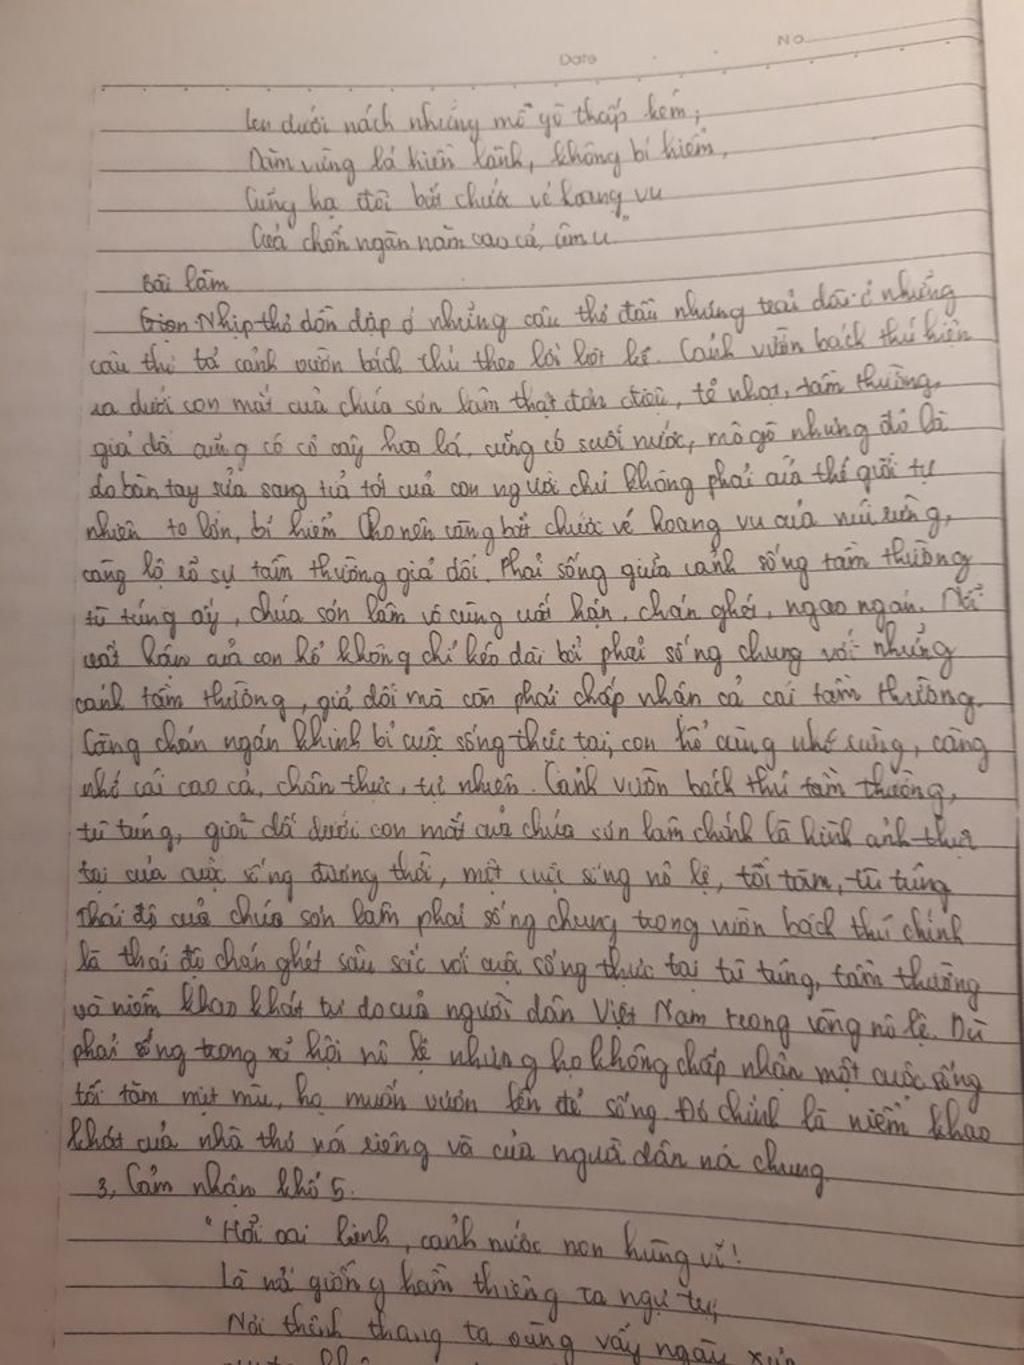 Date No
len dưới nách những mô gò thấp kém;
Dăm vừng lá hiền lành, không bí hiểm,
Cũng học đòi bắt chước vẻ hoang vu
Của chốn ngàn năm cao cả, âm u."
Bài làm
Giọng Nhịp thơ dồn dập ở những câu thơ đầu nhưng trải dài ở những
câu thơ tả cảnh vườn bách thú theo lối liệt kê. Cảnh vườn bách thú hiện
ra dưới con mắt của chúa sơn lâm thật đơn điệu, tẻ nhạt, tầm thường,
giả dối cũng có cỏ cây hoa lá, cũng có suối nước, mô gò nhưng đó là
do bàn tay sửa sang tỉa tót của con người chứ không phải của thế giới tự
nhiên to lớn, bí hiểm Cho nên càng bắt chước vẻ hoang vu của núi rừng,
càng lộ rõ sự tầm thường giả dối. Phải sống giữa cảnh sống tầm thường
tù túng ấy, chúa sơn lâm vô cùng uất hận, chán ghét, ngao ngán. Nỗi
uất hận của con hổ không chỉ kéo dài bởi phải sống chung với những
cảnh tầm thường, giả dối mà còn phải chấp nhận cả cái tầm thường.
Càng chán ngán khinh bỉ cuộc sống thực tại, con hổ càng nhớ rừng, càng
nhớ cái cao cả, chân thực, tự nhiên. Cảnh vườn bách thú tầm thường,
tù túng, giả dối dưới con mắt của chúa sơn lâm chính là hình ảnh thực
tại của cuộc sống đương thời, một cuộc sống nô lệ, tối tăm, tù túng
Thái độ của chúa sơn lâm phải sống chung trong vườn bách thú chính
là thái độ chán ghét sâu sắc với cuộc sống thực tại tù túng, tầm thường
và niềm khao khát tự do của người dân Việt Nam trong vòng nô lệ. Dù
phải sống trong xã hội nô lệ nhưng họ không chấp nhận một cuộc sống
tối tăm mịt mù, họ muốn vươn lên để sống. Đó chính là niềm khao
khát của nhà thơ nói riêng và của người dân nói chung
3, Cảm nhận khổ 5.
"Hỡi oai linh, cảnh nước non hùng vĩ!
Là nơi giống hầm thiêng ta ngự trị,
Nơi thênh thang ta vùng vẫy ngày xưa